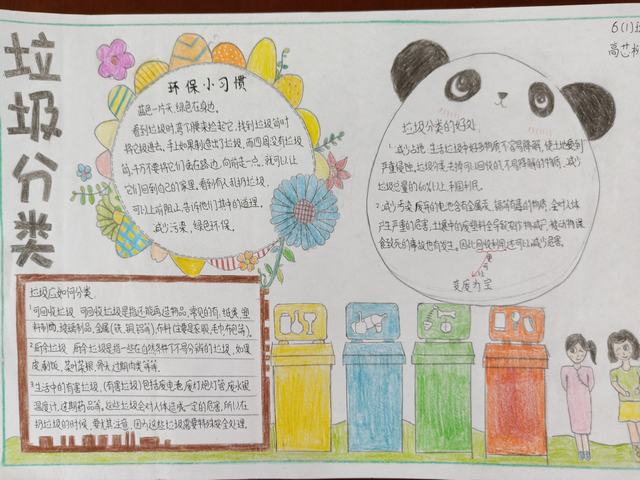 垃圾分类
6(1)班
高艺
环保小习惯
蓝色一片天,绿色在身边。
看到垃圾时弯下腰来捡起它,找到垃圾筒时
将它放进去,手上如果制造出了垃圾,而四周没有垃圾
筒,千万不要将它们丢在路边,向前走一点,就可以让
它们回到自己的家里,看到有人乱扔垃圾,
可以上前阻止,告诉他们其中的道理。
减少污染,绿色环保。
垃圾分类的好处
1.减少占地,生活垃圾中好多物质不容易降解,使土地受到
严重侵蚀。垃圾分类去掉可以回收的、不易降解的物质,减少
垃圾总量的60%以上,利国利民。
2.减少污染,废弃的电池含有金属汞、镉等有毒的物质,会对人体
产生严重的危害,土壤中的废塑料会导致农作物减产,被动物误
食致死的事故也有发生。因此回收利用还可以减少危害。
变废为宝
垃圾应如何分类
1.可回收垃圾 可回收垃圾是指还能再造物品,常见的有:纸类,塑
料制物,玻璃制品,金属(铁,铜,铝等),布料(主要是衣服,毛巾,布包等)。
2.厨余垃圾 厨余垃圾是指一些在自然条件下不易分解的垃圾,如果
皮,剩饭,菜叶菜根,骨头,过期肉类等等。
3.生活中的有害垃圾,(有害垃圾)包括废电池,废灯炮灯管,废水银
温度计,过期药品等。这些垃圾会对人体造成一定的危害,所以在
扔垃圾的时候,要尤其注意,因为这些垃圾需要特殊安全处理。